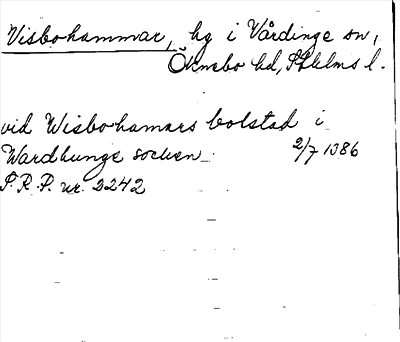 Visbohammar, hg i Vårdinge sn,
Öknebo hd, Sthlms l.
vid Wisbohamars bolstad i
Wardhunge socken 2/7 1386
S.R.P. nr. 2242